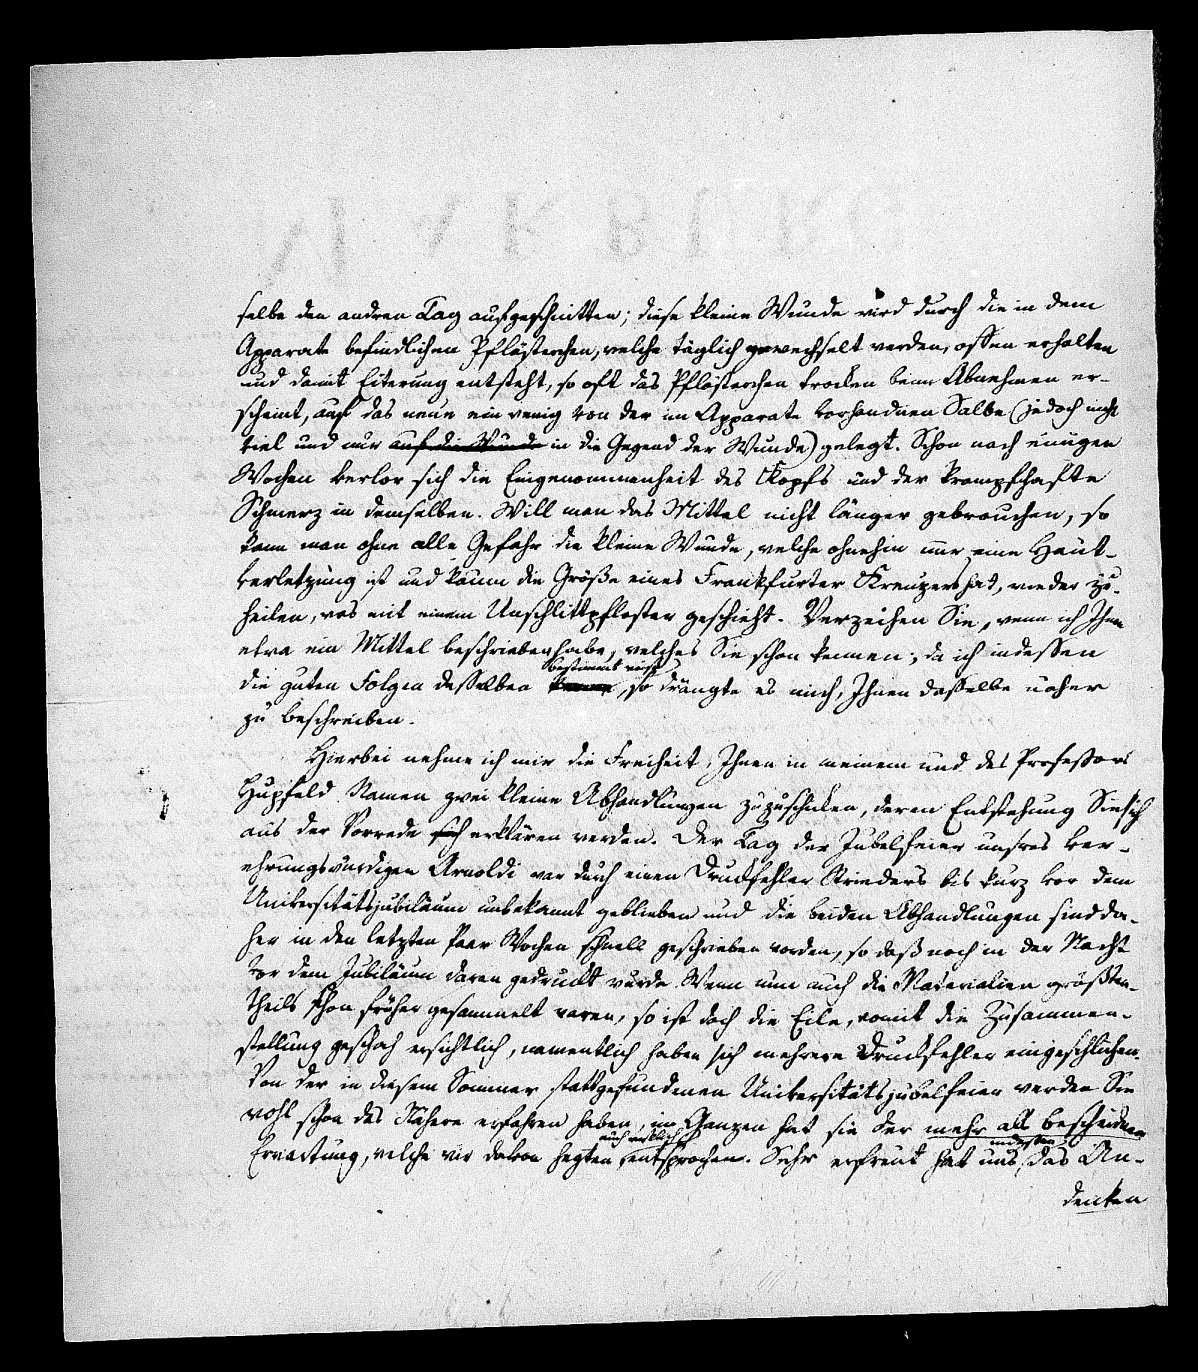 selbe den andren Tag aufgeschnitten; diese kleine Wunde wird durch die in dem
Apparate befindlichen Pflästerchen, welche täglich gewechselt werden, offen erhalten
und damit Eiterung entsteht, so oft das Pflästerchen trocken beim Abnehmen er-
scheint, auf das neue ein wenig von der im Apparate vorhandnen Salbe (jedoch nicht
viel und nur auf die Wunde in die Gegend der Wunde) gelegt. Schon nach einigen
Wochen verlor sich die Eingenommenheit des Kopfs und der krampfhafte
Schmerz in demselben. Will man das Mittel nicht länger gebrauchen, so
kann man ohne alle Gefahr die kleine Wunde, welche ohnehin nur eine Haut-
verletzung ist und kaum die Größe eines Frankfurter Kreuzers hat, wieder zu-
heilen, was mit einem Unschlittpflaster geschieht. Verzeihen Sie, wenn ich Ihnen
etwa ein Mittel beschrieben habe, welches Sie schon kennen; da ich indessen
bestimmt weiß
die guten Folgen desselben kenne, so drängte es mich, Ihnen dasselbe näher
zu beschreiben.
Hierbei nehme ich mir die Freiheit, Ihnen in meinem und des Professors
Hupfeld Namen zwei kleine Abhandlungen zuzuschicken, deren Entstehung Sie sich
aus der Vorrede sich erklären werden. Der Tag der Jubelfeier unsres ver-
ehrungswürdigen Arnoldi war durch einen Druckfehler Strieders bis kurz vor dem
Universitätsjubiläum unbekannt geblieben und die beiden Abhandlungen sind da-
her in den letzten paar Wochen schnell geschrieben worden, so daß noch in der Nacht
vor dem Jubiläum daran gedruckt wurde. Wenn nun auch die Materialien größten-
theils schon früher gesammelt waren, so ist doch die Eile, womit die Zusammen-
stellung geschah ersichtlich, namentlich haben sich mehrere Druckfehler eingeschlichen.
Von der in diesem Sommer stattgefundenen Universitätsjubelfeier werden Sie
wohl schon das Nähere erfahren haben, im Ganzen hat sie der mehr als bescheidnen
auch wirklich indessen
Erwartung, welche wir davon hegten, entsprochen. Sehr erfreut hat uns, das An-
denken